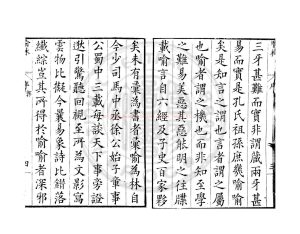 三牙甚難而實非謂臧兩牙甚
易而實是孔氏祖孫庶幾喻喻
矣是知言之謂也言是者謂之
喻也者謂之機也而非知至學
之難易美惡其惡能明之往牒
載喻言自六經及子史百家夥
矣未有彙為書者彙喻為林自
今少司馬中丞徐公始子韋事
公蜀中三載每談天下事旁證
逖引驚聽回視至所為文影寫
雲物比擬今曩易象詩比錯落
纖綜豈其所得於喻喻者深邪
喻林
序
四